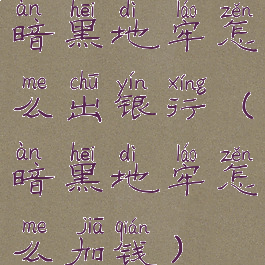 àn hēi dì láo zěn
暗黑地牢怎
me chū yín xíng
么出银行（
àn hēi dì láo zěn
暗黑地牢怎
me jiā qián
么加钱）